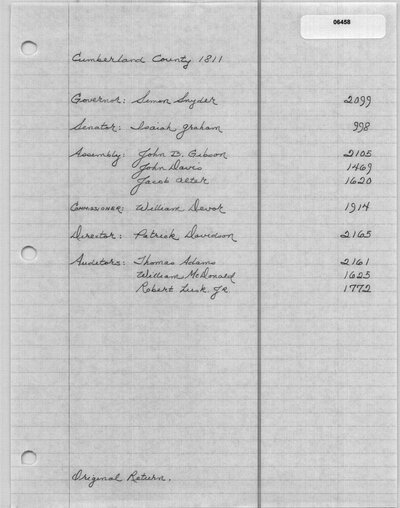 06458
Cumberland County 1811
Governor: Simon Snyder 2099
Senator: Isaiah Graham 998
Assembly: John B. Gibson 2105
John Davis 1469
Jacob Alter 1620
Commissioner: William Davor 1914
Director: Patrick Davidson 2165
Auditors: Thomas Adams 2161
William McDonald 1625
Robert Lusk Jr 1772
Original Return.